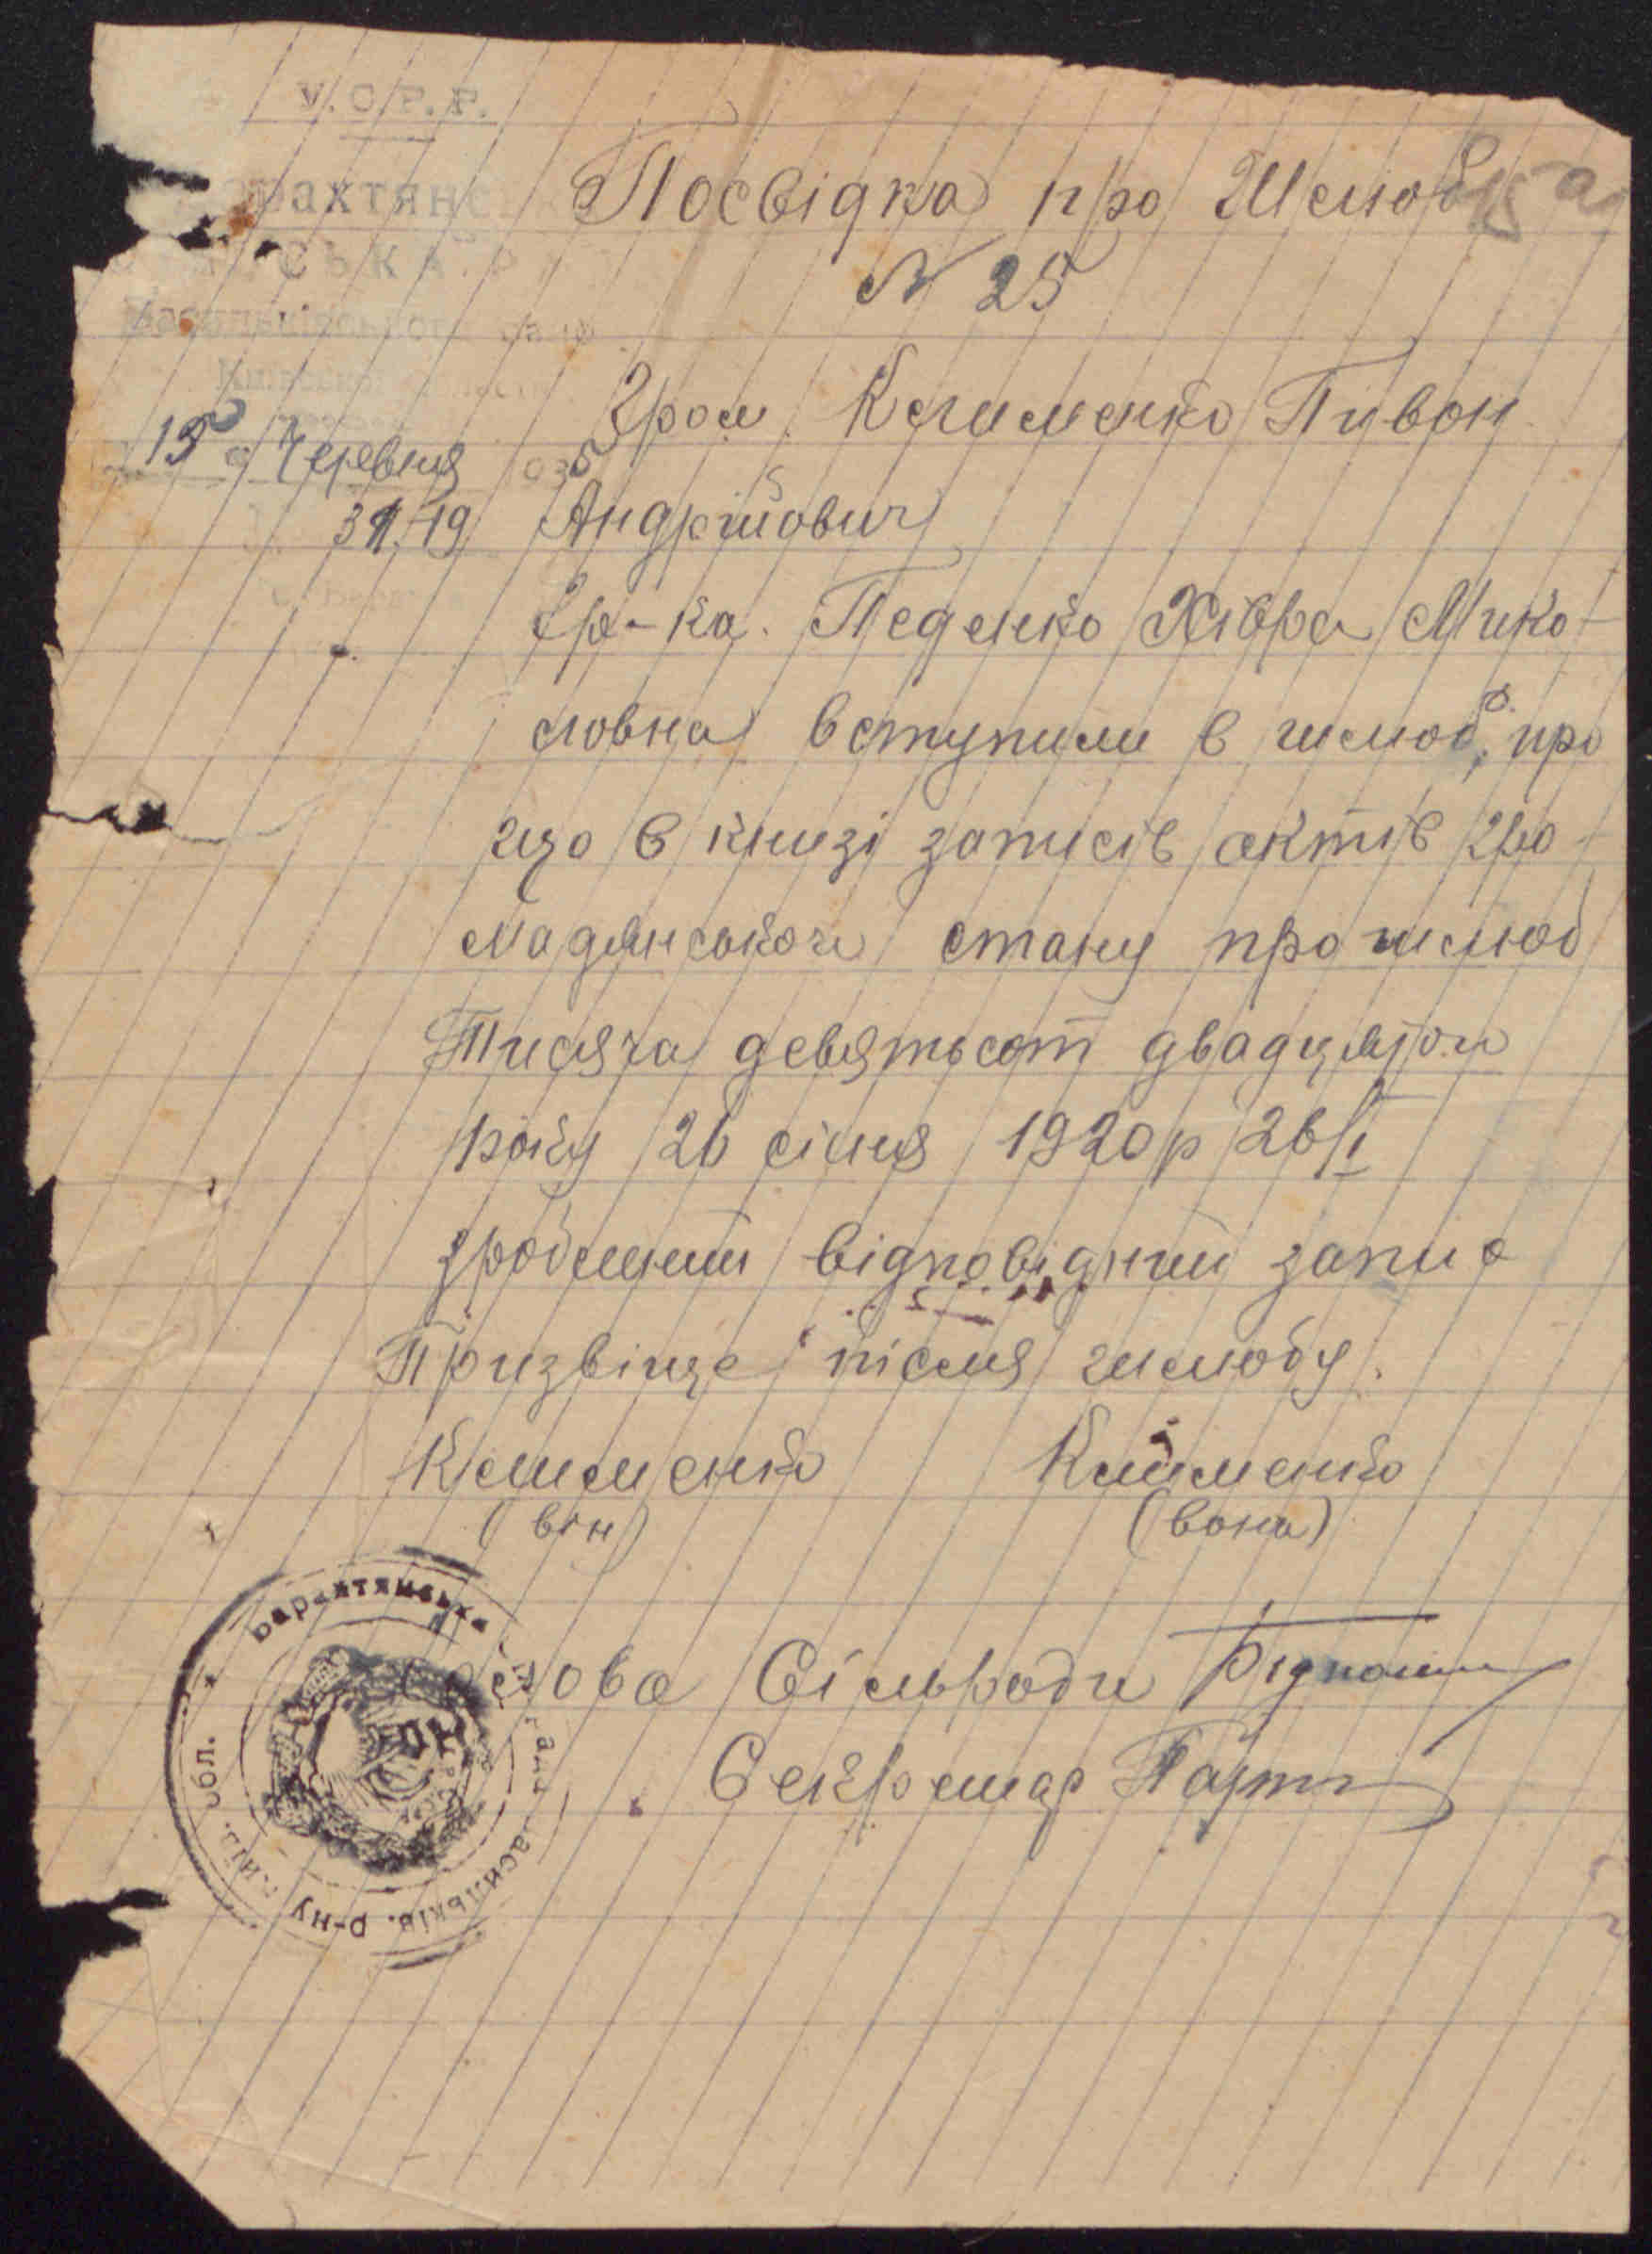 У.С.Р.Р.
Посвідка про Шлюб
N 25
15 Червня
31/19
Гром. Клименко Пивон
Андрійович
Гр-ка. Педенко Хівря Мико-
ловна вступили в шлюб, про
що в книзі записів актів гро-
мадянського стану про шлюб
Тисяча девятьсот двадцятого
року 26 січня 1920 р 26/I
зроблений відповідний запис
Призвіще після шлюбу.
Клименко Клименко
(він) (вона)
Голова Сільради
Секретар
Барахтянська
Васильків. р-ну
обл.